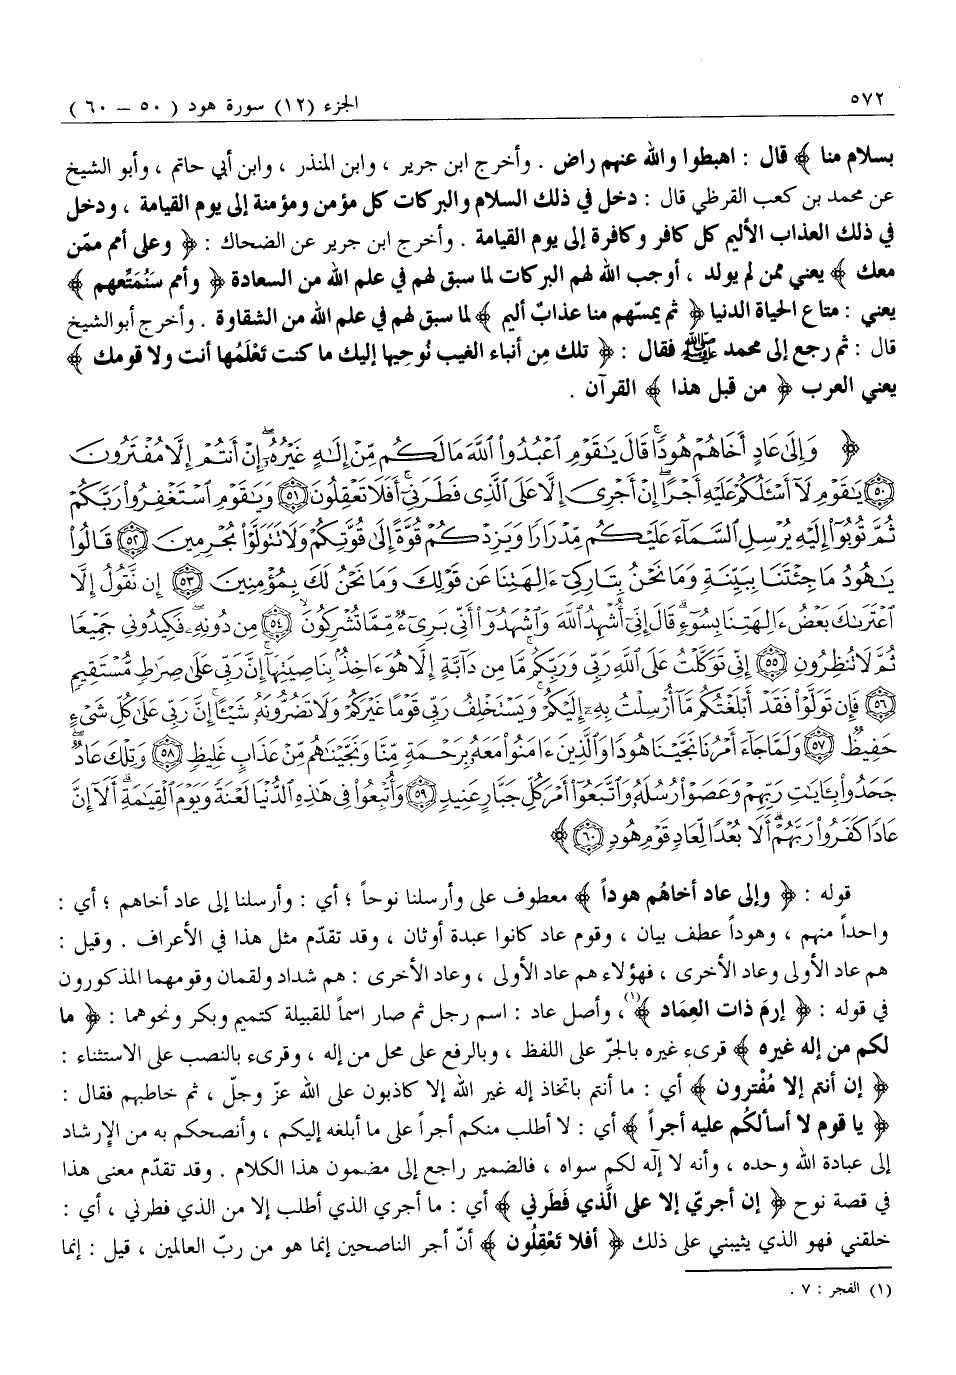 ٥٧٢ الجزء (١٢) سورة هود ( ٥٠ – ٦٠ )
بسلام منا ﴾ قال : اهبطوا والله عنهم راض . وأخرج ابن جرير ، وابن المنذر ، وابن أبي حاتم ، وأبو الشيخ
عن محمد بن كعب القرظي قال : دخل في ذلك السلام والبركات كل مؤمن ومؤمنة إلى يوم القيامة ، ودخل
في ذلك العذاب الأليم كل كافر وكافرة إلى يوم القيامة . وأخرج ابن جرير عن الضحاك : ﴿ وعلى أمم ممّن
معك ﴾ يعني ممن لم يولد ، أوجب الله لهم البركات لما سبق لهم في علم الله من السعادة ﴿ وأمم سَنُمَتِّعهم ﴾
يعني : متاع الحياة الدنيا ﴿ ثم يمسّهم منا عذابٌ أليم ﴾ لما سبق لهم في علم الله من الشقاوة . وأخرج أبو الشيخ
قال : ثم رجع إلى محمد ﷺ فقال : ﴿ تلك مِن أنباء الغيب نُوحِيها إليك ما كنت تَعْلَمُها أنت ولا قومك ﴾
يعني العرب ﴿ من قبل هذا ﴾ القرآن .
﴿ وَإِلَىٰ عَادٍ أَخَاهُمْ هُودًاۚ قَالَ يَٰقَوْمِ ٱعْبُدُوا۟ ٱللَّهَ مَا لَكُم مِّنْ إِلَٰهٍ غَيْرُهُۥٓۖ إِنْ أَنتُمْ إِلَّا مُفْتَرُونَ
۝٥٠ يَٰقَوْمِ لَآ أَسْـَٔلُكُمْ عَلَيْهِ أَجْرًاۖ إِنْ أَجْرِىَ إِلَّا عَلَى ٱلَّذِى فَطَرَنِىٓۚ أَفَلَا تَعْقِلُونَ ۝٥١ وَيَٰقَوْمِ ٱسْتَغْفِرُوا۟ رَبَّكُمْ
ثُمَّ تُوبُوٓا۟ إِلَيْهِ يُرْسِلِ ٱلسَّمَآءَ عَلَيْكُم مِّدْرَارًا وَيَزِدْكُمْ قُوَّةً إِلَىٰ قُوَّتِكُمْ وَلَا تَتَوَلَّوْا۟ مُجْرِمِينَ ۝٥٢ قَالُوا۟
يَٰهُودُ مَا جِئْتَنَا بِبَيِّنَةٍ وَمَا نَحْنُ بِتَارِكِىٓ ءَالِهَتِنَا عَن قَوْلِكَ وَمَا نَحْنُ لَكَ بِمُؤْمِنِينَ ۝٥٣ إِن نَّقُولُ إِلَّا
ٱعْتَرَىٰكَ بَعْضُ ءَالِهَتِنَا بِسُوٓءٍۗ قَالَ إِنِّىٓ أُشْهِدُ ٱللَّهَ وَٱشْهَدُوٓا۟ أَنِّى بَرِىٓءٌ مِّمَّا تُشْرِكُونَ ۝٥٤ مِن دُونِهِۦۖ فَكِيدُونِى جَمِيعًا
ثُمَّ لَا تُنظِرُونِ ۝٥٥ إِنِّى تَوَكَّلْتُ عَلَى ٱللَّهِ رَبِّى وَرَبِّكُمۚ مَّا مِن دَآبَّةٍ إِلَّا هُوَ ءَاخِذٌۢ بِنَاصِيَتِهَآۚ إِنَّ رَبِّى عَلَىٰ صِرَٰطٍ مُّسْتَقِيمٍ
۝٥٦ فَإِن تَوَلَّوْا۟ فَقَدْ أَبْلَغْتُكُم مَّآ أُرْسِلْتُ بِهِۦٓ إِلَيْكُمْۚ وَيَسْتَخْلِفُ رَبِّى قَوْمًا غَيْرَكُمْ وَلَا تَضُرُّونَهُۥ شَيْـًٔاۚ إِنَّ رَبِّى عَلَىٰ كُلِّ شَىْءٍ
حَفِيظٌ ۝٥٧ وَلَمَّا جَآءَ أَمْرُنَا نَجَّيْنَا هُودًا وَٱلَّذِينَ ءَامَنُوا۟ مَعَهُۥ بِرَحْمَةٍ مِّنَّا وَنَجَّيْنَٰهُم مِّنْ عَذَابٍ غَلِيظٍ ۝٥٨ وَتِلْكَ عَادٌۖ
جَحَدُوا۟ بِـَٔايَٰتِ رَبِّهِمْ وَعَصَوْا۟ رُسُلَهُۥ وَٱتَّبَعُوٓا۟ أَمْرَ كُلِّ جَبَّارٍ عَنِيدٍ ۝٥٩ وَأُتْبِعُوا۟ فِى هَٰذِهِ ٱلدُّنْيَا لَعْنَةً وَيَوْمَ ٱلْقِيَٰمَةِۗ أَلَآ إِنَّ
عَادًا كَفَرُوا۟ رَبَّهُمْۗ أَلَا بُعْدًا لِّعَادٍ قَوْمِ هُودٍ ۝٦٠ ﴾
قوله : ﴿ وإلى عاد أخاهُم هوداً ﴾ معطوف على وأرسلنا نوحاً ؛ أي : وأرسلنا إلى عاد أخاهم ؛ أي :
واحداً منهم ، وهوداً عطف بيان ، وقوم عاد كانوا عبدة أوثان ، وقد تقدّم مثل هذا في الأعراف . وقيل :
هم عاد الأولى وعاد الأخرى ، فهؤلاء هم عاد الأولى ، وعاد الأخرى : هم شداد ولقمان وقومهما المذكورون
في قوله : ﴿ إرمَ ذات العِمَاد ﴾(١)، وأصل عاد : اسم رجل ثم صار اسماً للقبيلة كتميم وبكر ونحوهما : ﴿ ما
لكم من إله غيره ﴾ قرىء غيره بالجرّ على اللفظ ، وبالرفع على محل من إله ، وقرىء بالنصب على الاستثناء :
﴿ إن أنتم إلا مُفْترون ﴾ أي : ما أنتم باتخاذ إله غير الله إلا كاذبون على الله عزّ وجلّ ، ثم خاطبهم فقال :
﴿ يا قوم لا أسألكُم عليه أجراً ﴾ أي : لا أطلب منكم أجراً على ما أبلغه إليكم ، وأنصحكم به من الإرشاد
إلى عبادة الله وحده ، وأنه لا إله لكم سواه ، فالضمير راجع إلى مضمون هذا الكلام . وقد تقدّم معنى هذا
في قصة نوح ﴿ إن أجريَ إلا على الَّذي فَطَرني ﴾ أي : ما أجري الذي أطلب إلا من الذي فطرني ، أي :
خلقني فهو الذي يثيبني على ذلك ﴿ أفلا تَعْقِلُون ﴾ أنّ أجر الناصحين إنما هو من ربّ العالمين ، قيل : إنما
(١) الفجر : ٧ .